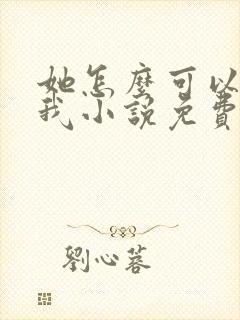 她怎麼可以
我小說免費
劉心蓉